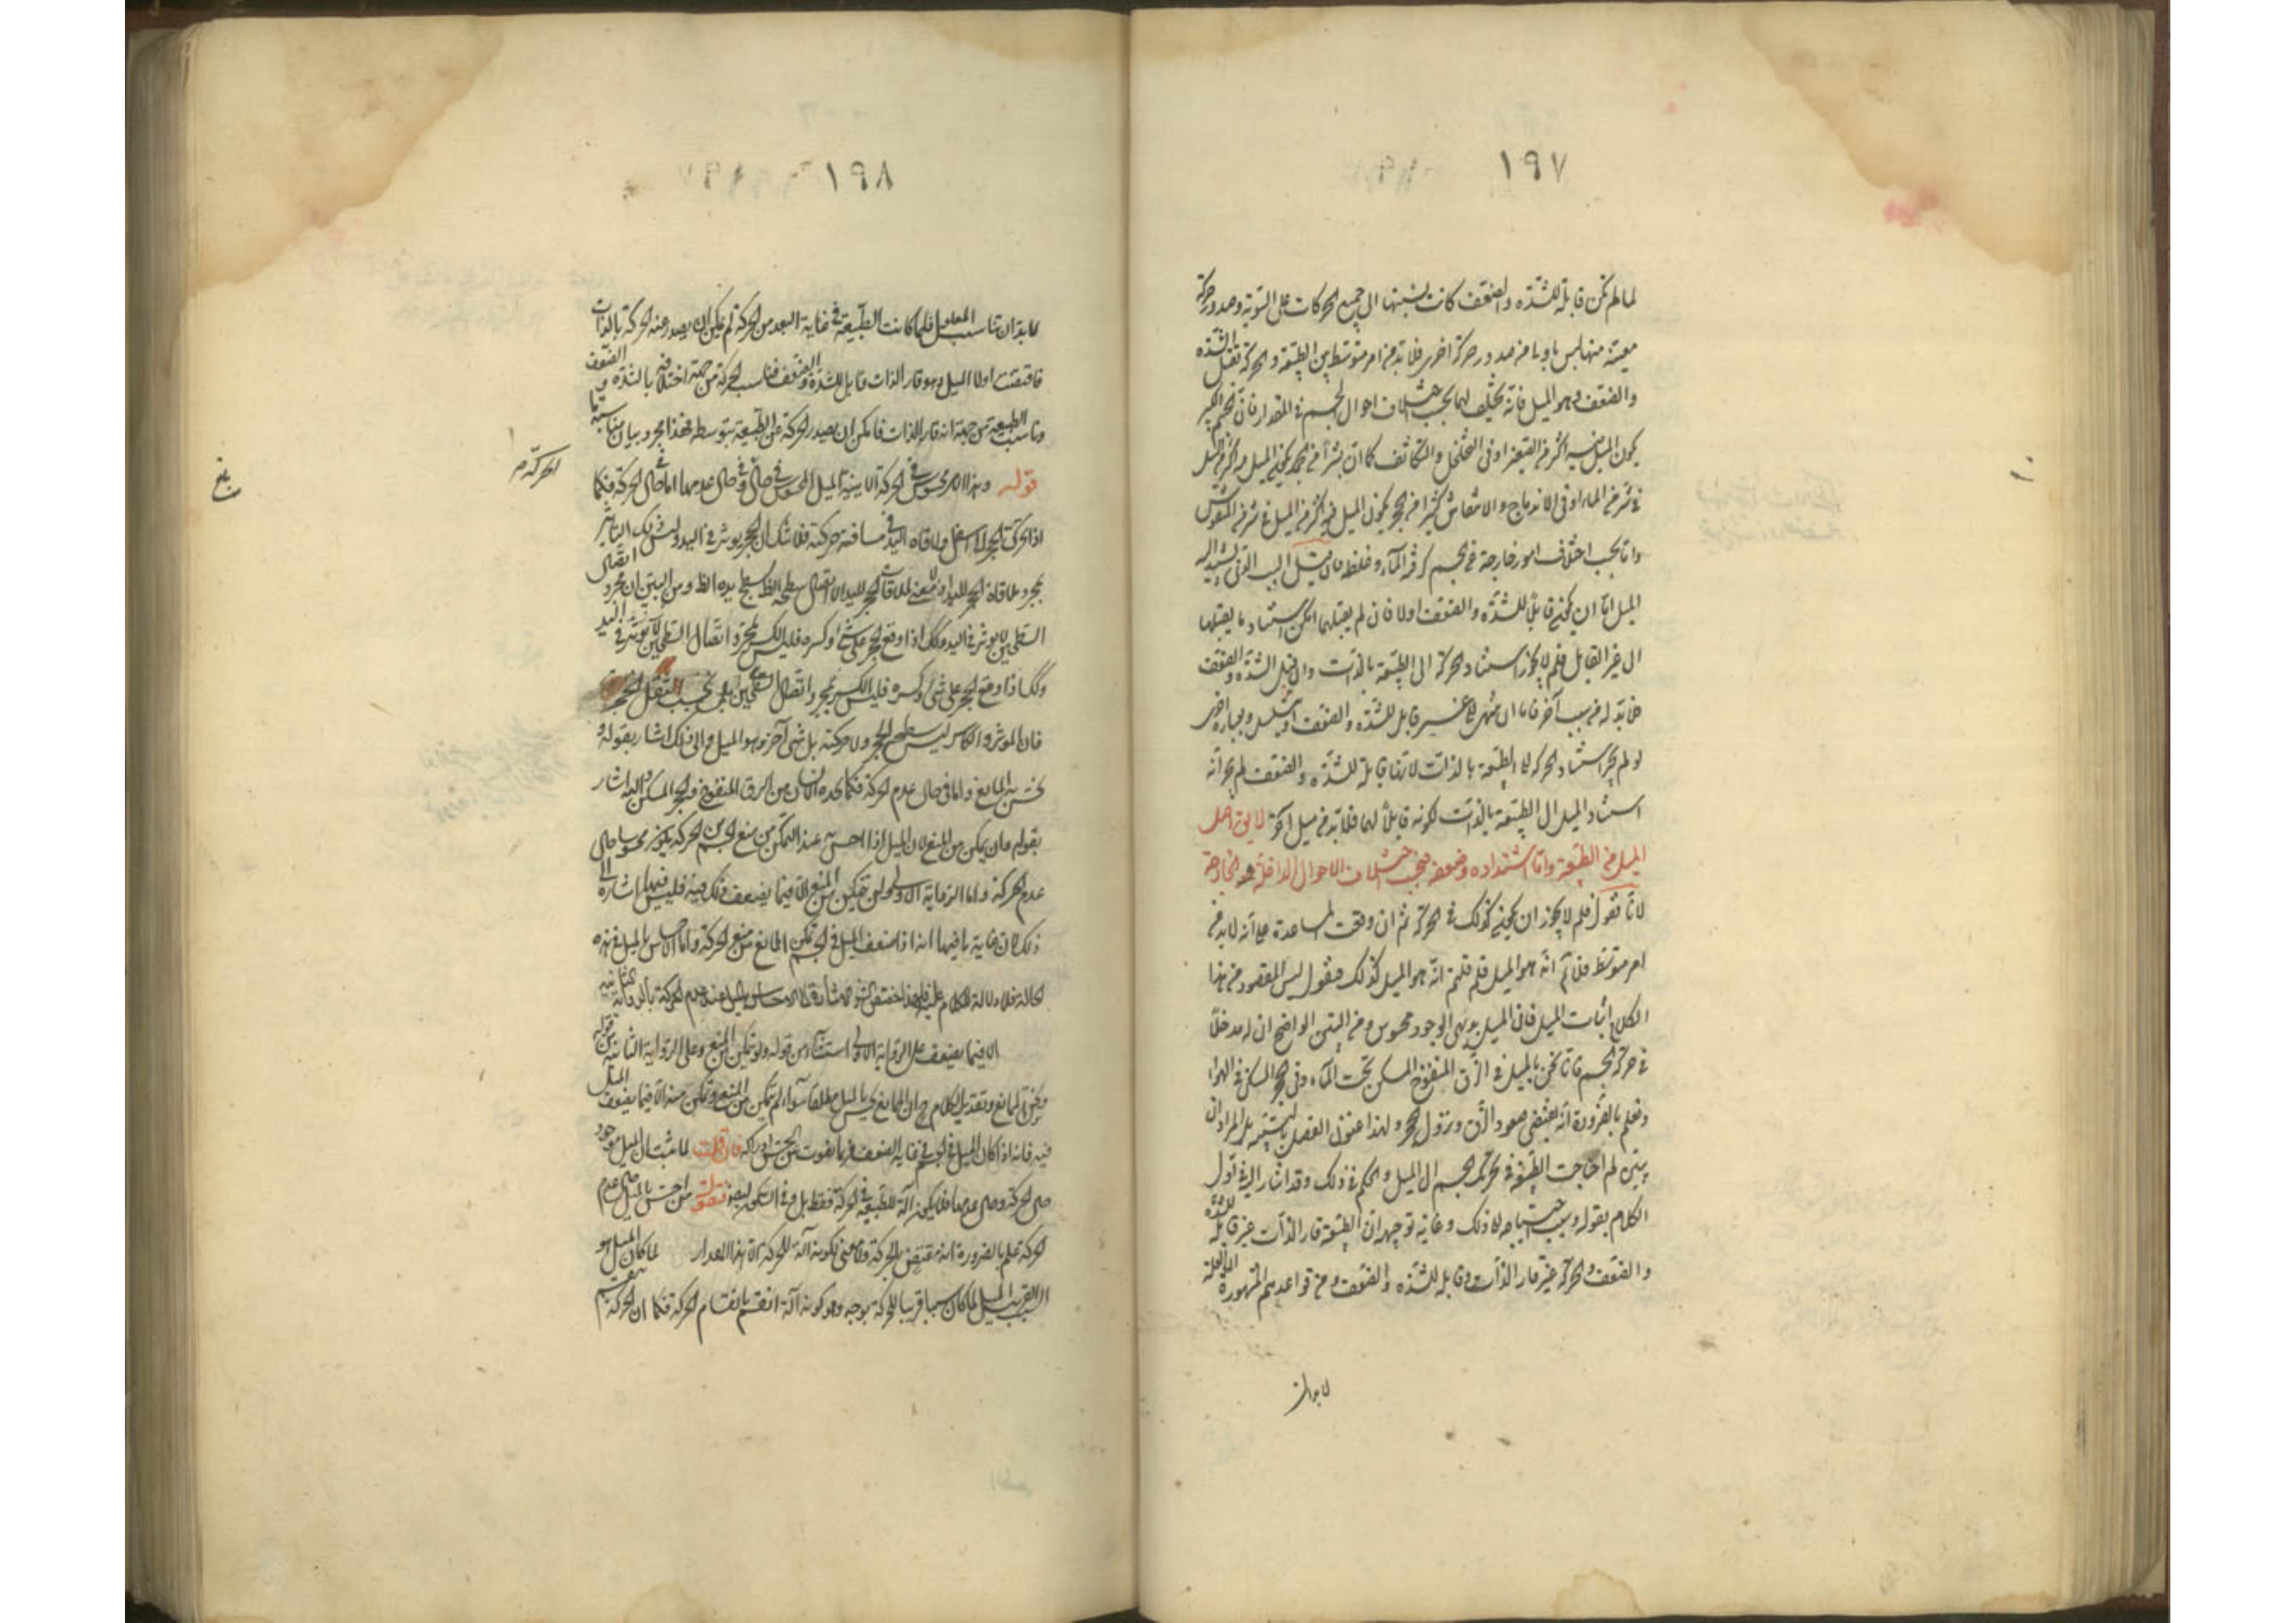 ١٩٧
لما لم تكن قابلة للشدّة والضعف كانت نسبتها الى جميع الحركات على السّوية وصدور حركة
معينة منها ليس باولى من صدور حركة اخرى فلا بد من امر متوسط بين الطبيعة والحركة تقبل الشدّة
والضعف وهو الميل فانه يختلف اما بحسب اختلاف احوال الجسم فى المقدار فان الجسم الكبير
يكون الميل فيه اكثر من الصغير او فى التخلخل والتكاثف كما ان شبرا من الحجر يكون الميل فيه اكثر من الميل
فى شبر من الماء او فى الاندماج والانتفاش
واما بحسب اختلاف امور خارجة عن الجسم كرقة الماء وغلظه فان قيل السبب الذى يستند اليه
الميل اما ان يكون قابلا للشدّة والضعف اولا فان لم يقبلهما امكن استناد ما يقبلهما
الى غير القابل فلم لا يجوز استناد الحركة الى الطبيعة بالذات وان قبل الشدة والضعف
فلا بد له من سبب آخر فاما ان ينتهى الى غير قابل للشدّة والضعف او يتسلسل وبعبارة اخرى
لو لم يجز استناد الحركة الى الطبيعة بالذات لانها قابلة للشدّة والضعف لم يجز
استناد الميل الى الطبيعة بالذات لكونه قابلا لهما فلا بد من ميل آخر لا يق اصل
الميل من الطبيعة واما اشتداده وضعفه فبحسب اختلاف الاحوال الداخلة والخارجة
لانا نقول فلم لا يجوز ان يكون كذلك فى الحركة ثم ان وقعت المساعدة على انه لا بد من
امر متوسط فلا تم انه هو الميل فلم قلتم انه هو الميل كذلك فنقول ليس المقصود من هذا
الكلام اثبات الميل فان الميل بديهى الوجود محسوس ومن البين الواضح ان له مدخلا
فى حركة الجسم فانا نحس بالميل فى الزق المنفوخ المسكن تحت الماء وفى الحجر المسكن فى الهواء
ونعلم بالضرورة انه يقتضى صعود الزق ونزول الحجر ولهذا عنون الفصل بالتنبيه بل المراد ان
يبين لم احتاجت الطبيعة فى تحريك الجسم الى الميل والحكم فى ذلك وقد اشار اليه فى اول
الكلام بقوله وسبب احتياجه الى ذلك وغاية توجيهه ان الطبيعة قار الذات غير قابلة للشدّة
والضعف والحركة غير قار الذات وقابلة للشدّة والضعف ومن قواعدهم المشهورة ان العلة
لا بد ان
١٩٨
لا بد ان تناسب المعلول فلما كانت الطبيعة فى غاية البعد من الحركة لم يمكن ان يصدر عنه الحركة بالذات
فاقتضت اولا الميل وهو قار الذات قابل للشدّة والضعف فناسب الحركة من جهة اختلافه بالشدّة والضعف
وناسب الطبيعة من جهة انه قار الذات فامكن ان يصدر الحركة عن الطبيعة بتوسطه فهذا مجرد بيان مناسبة ما
قوله وهذا الامر محسوس فى الحركة الاينية الميل المحسوس فى حال وفى حال عدمها اما فى حال الحركة فكما
الحركة م
بلغ
اذا تحرك الحجر الى اسفل ولاقاه اليد فى مسافة حركته فلا شك ان الحجر يؤثر فى اليد وليس ذلك التاثير
بمجرد ملاقاة الحجر لليد اذ لا معنى لملاقاة الحجر لليد الا اتصال سطحه الظ بسطح يده الظ ومن البين ان مجرد اتصال
السطحين لا يؤثر فى اليد وكذلك اذا وقع الحجر على شئ وكسره فليس الكسر بمجرد اتصال السطحين لا يؤثر فى اليد
وكذا اذا وقع الحجر على شئ وكسره فليس الكسر بمجرد اتصال السطحين بل بحسب الثقل الحجر
فان المؤثر والكاسر ليس سطح الحجر ولا حركته بل شئ آخر وهو الميل والى ذلك اشار بقوله و
يحس به الممانع واما فى حال عدم الحركة فكما يجده الانسان من الزق المنفوخ والحجر المسكن واليه اشار
بقوله وان يمكن من المنع لان الميل اذا احس عند التمكن من منع الجسم عن الحركة يكون محسوسا حال
عدم الحركة واما الرواية الاولى ولن تتمكن من المنع الا فيما يضعف ذلك فيه فليس فيها اشارة الى
ذلك لان غاية ما فيها انه اذا ضعف الميل فى الجسم تمكن الممانع من منع الحركة واما الاحساس بالميل فى هذه
الحالة فلا دلالة للكلام عليه فلهذا خصص الشارح الاشارة الى الاحساس بالميل عند عدم الحركة بالرواية الثانية
الا فيما يضعف على الرواية الاولى استثناء من قوله ولن تتمكن من المنع وعلى الرواية الثانية من قوله
ويحس به الممانع وتقدير الكلام ح ان الممانع يحس بالميل مطلقا سواء لم يتمكن من المنع او تمكن منه الا فيما يضعف الميل
فيه فانه اذا كان الميل فى الجسم فى غاية الضعف فربما يفوت عن الحس ادراكه فان قلت لما ثبت ان الميل موجود
حال الحركة وحال عدمها فلا يكون آلة للطبيعة فى الحركة فقط بل وفى السكون ايضا فنقول من احس بالميل حال عدم
الحركة علم بالضرورة انه مقتضى للحركة ولا معنى لكونه آلة للحركة الا هذا المقدار لما كان الميل هو
السبب القريب الميل لما كان سببا قريبا للحركة بوجه وهو كونه آلة انقسم بانقسام الحركة فكما ان الحركة تنقسم